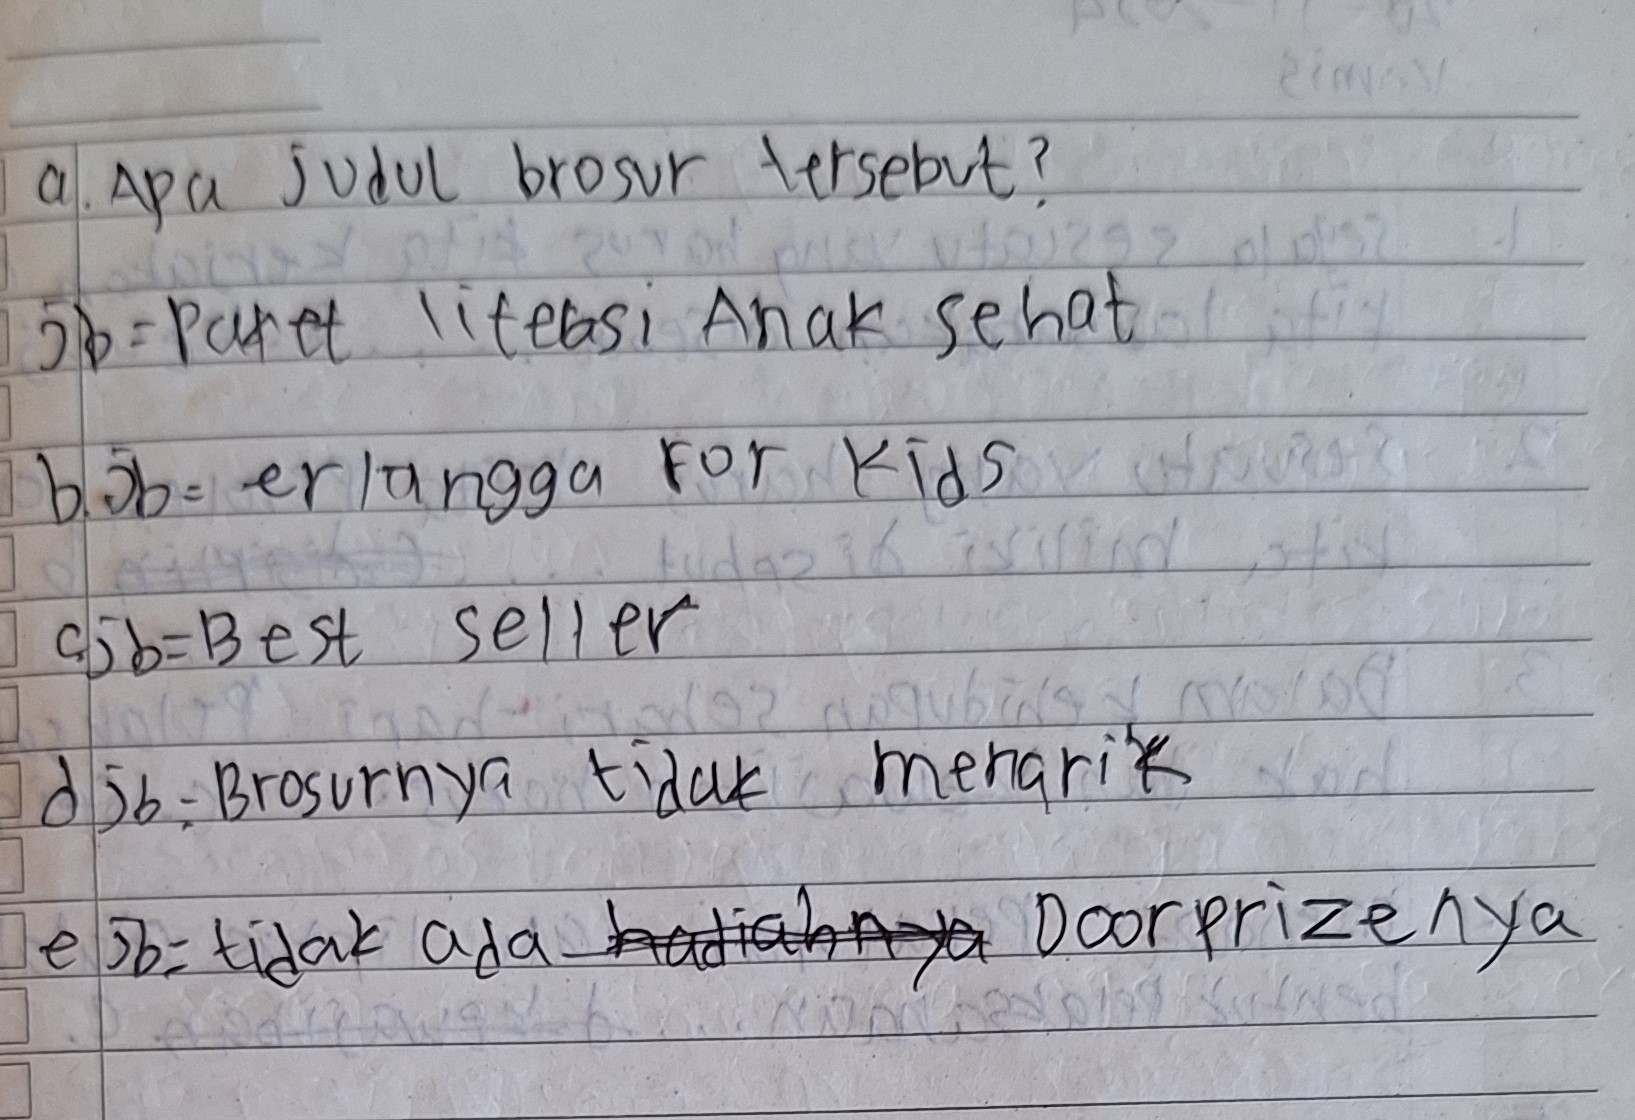 a. Apa judul brosur tersebut?
jb = Paket litebsi Anak sehat
b. jb = erlangga For Kids
c jb = Best seller
d jb = Brosurnya tidak menarik
e jb = tidak ada hadiahnya Doorprizenya